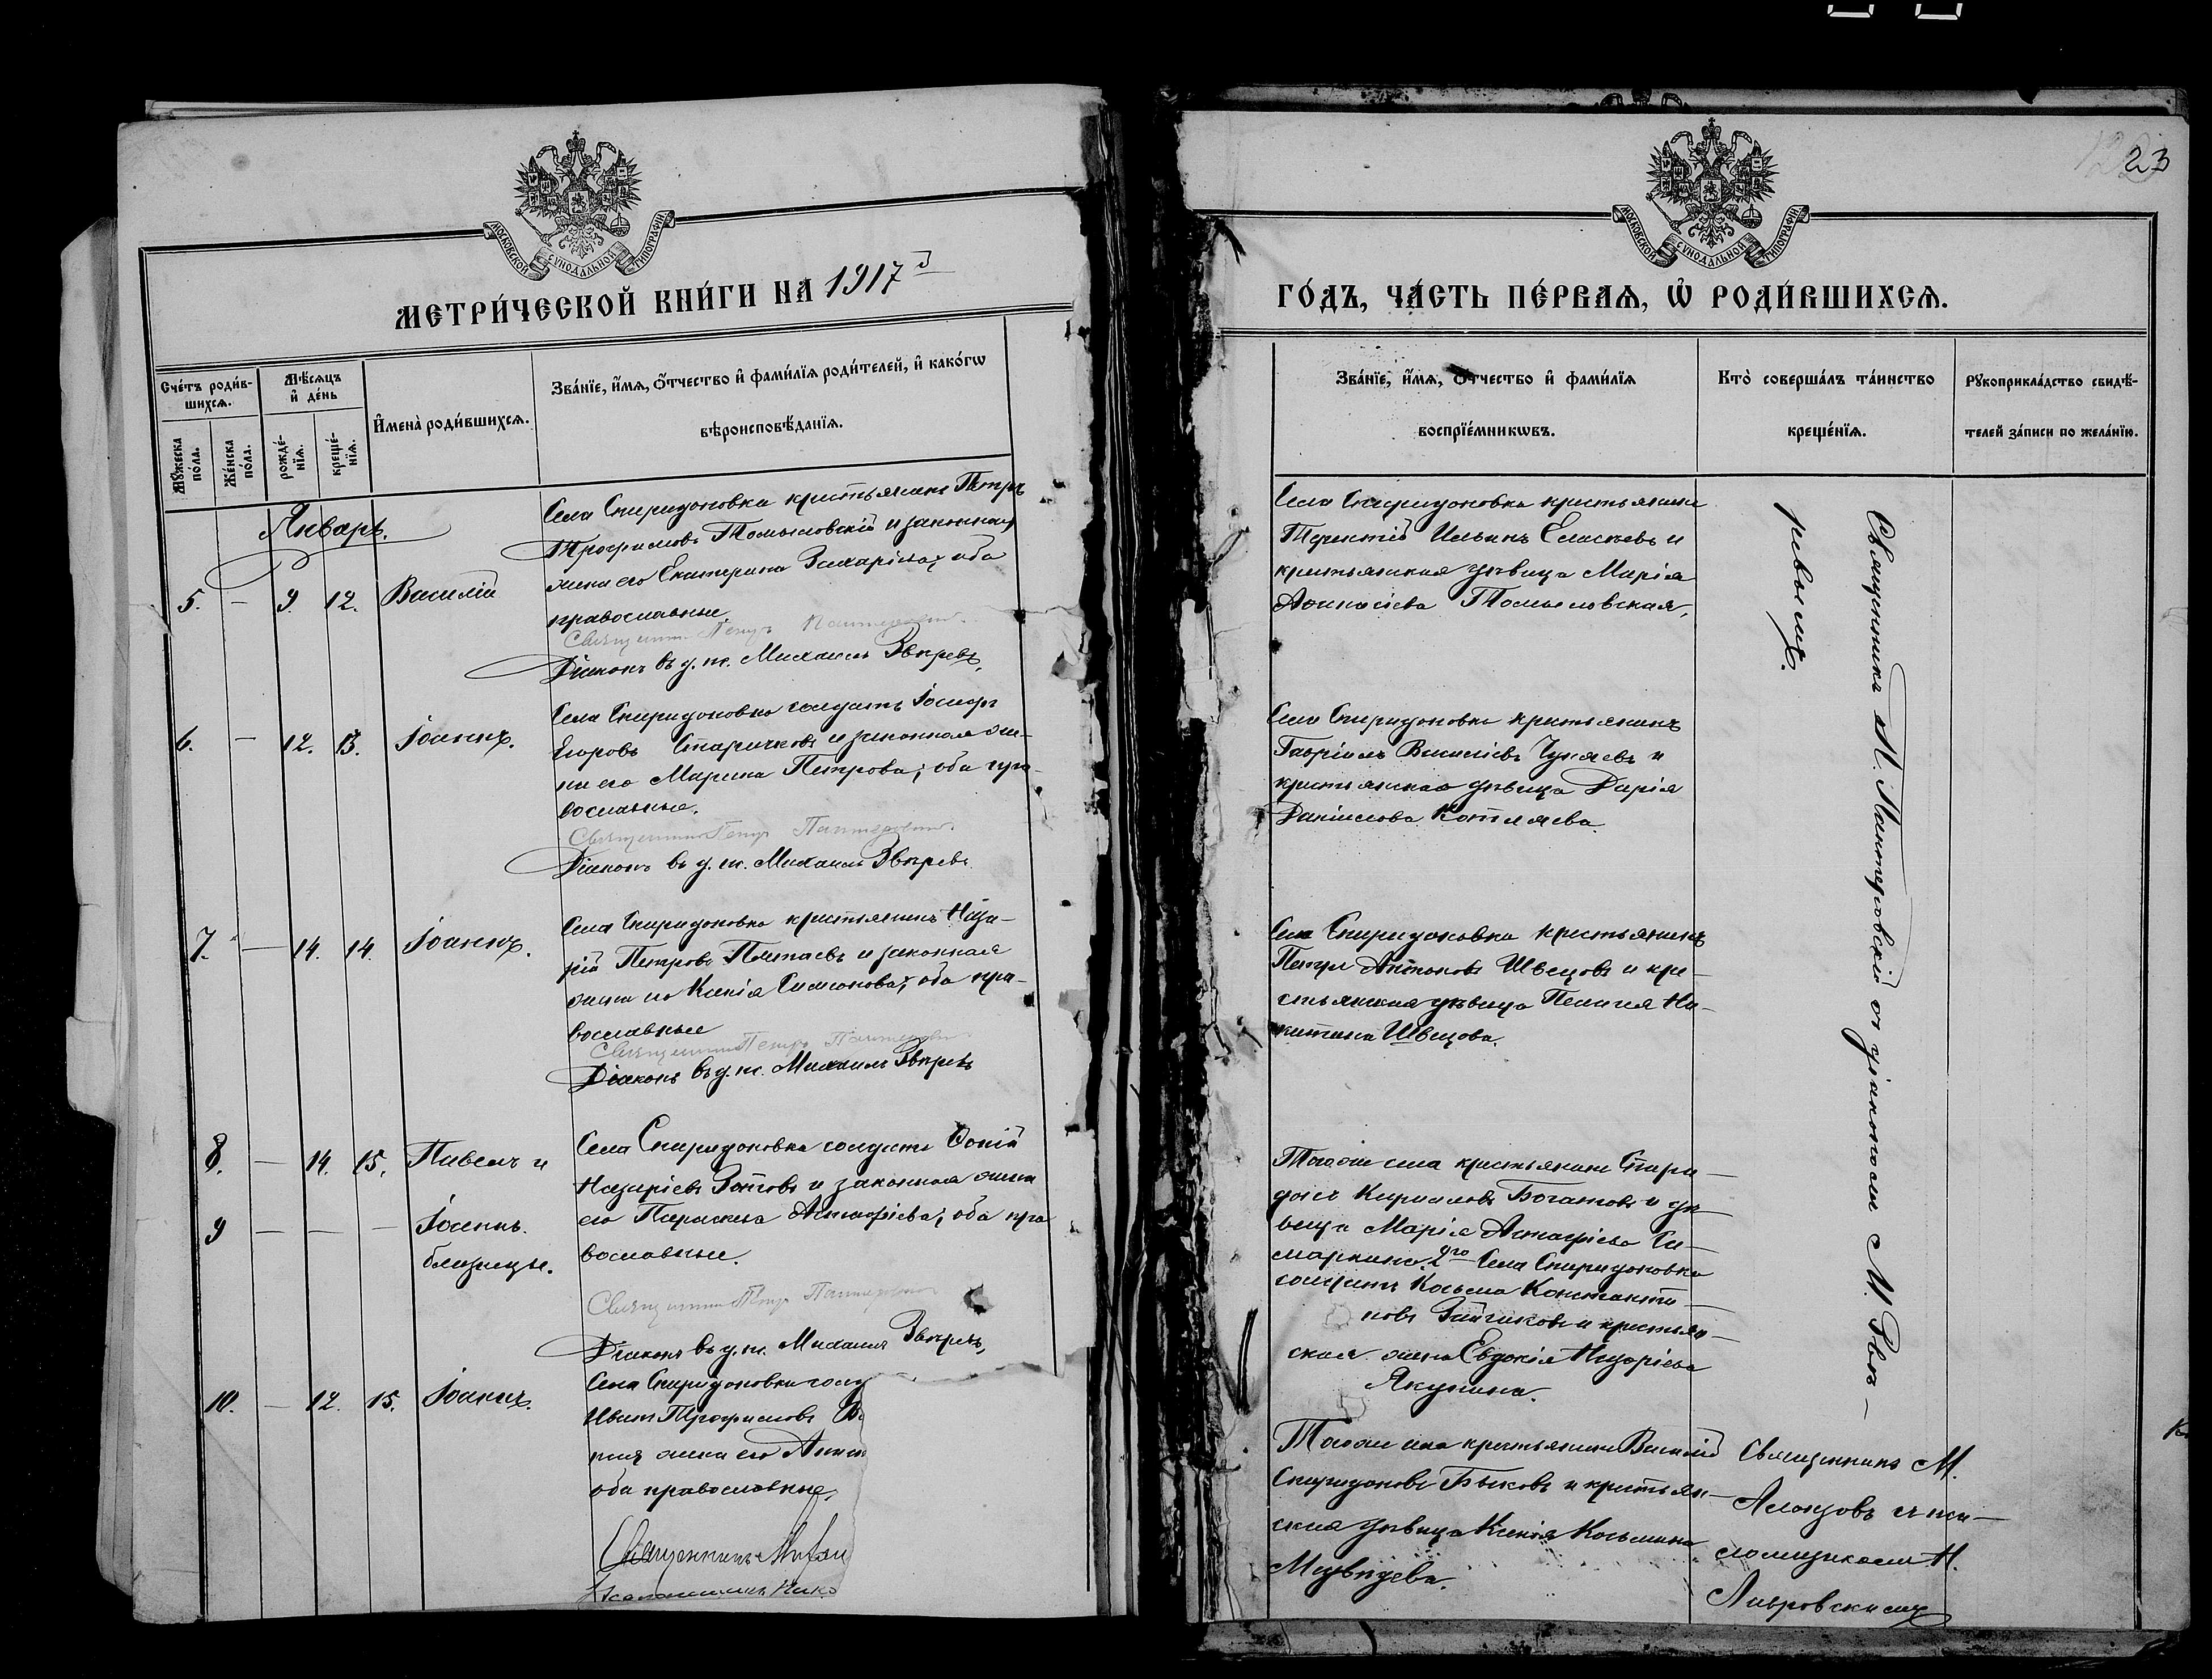 МОСКОВСКОЙ СУНОДАЛЬНОЙ ТИПОГРАФІИ
МЕТРИ́ЧЕСКОЙ КНИ́ГИ НА 1917й
Сче́тъ роди́в-
шихсѧ.
Мꙋ́жеска по́ла.
Же́нска по́ла.
Мѣ́сѧцъ и҆ де́нь
рожде́-
нїѧ.
креще́-
нїѧ.
И҆мена̀ роди́вшихсѧ.
Зва́нїе, и҆́мѧ, ѻ҆́тчество и҆ фами́лїѧ роди́телей, и҆ како́гѡ
вѣроисповѣ́данїѧ.
Январь.
5. — 9. 12. Василій
Села Спиридоновки крестьянинъ Петръ
Трофимовъ Томыловскій и законная
жена его Екатерина Захаріева; оба
православные.
Священникъ Петръ Пантеровскій
Діаконъ въ д. пс. Михаилъ Звѣревъ.
6. — 12. 13. Іоаннъ.
Села Спиридоновки солдатъ Іосифъ
Егоровъ Старичковъ и законная же-
на его Марина Петрова; оба пра-
вославные.
Священникъ Петръ Пантеровскій
Діаконъ въ д. пс. Михаилъ Звѣревъ
7. — 14. 14. Іоаннъ.
Села Спиридоновки крестьянинъ Наза-
рій Петровъ и законная
жена его Ксенія Симионова; оба пра-
вославные
Священникъ Петръ Пантеровскій
Діаконъ въ д. пс. Михаилъ Звѣревъ
8. — 14. 15. Павелъ и
9 — — — Іоаннъ.
близнецы.
Села Спиридоновки солдатъ
Назаріевъ Зотовъ и законная жена
его Параскева Астафіева; оба пра
вославные.
Священникъ Петръ Пантеровскій
Діаконъ въ д. пс. Михаилъ Звѣревъ,
10. — 12. 15. Іоаннъ.
Села Спиридоновки солд
Иванъ Трофимовъ
жена его Анна
оба православные.
Священникъ
Псаломщикъ Нико
23
МОСКОВСКОЙ СУНОДАЛЬНОЙ ТИПОГРАФІИ
ГО́ДЪ, ЧА́СТЬ ПЕ́РВАѦ, Ѡ҆ РОДИ́ВШИХСѦ.
Зва́нїе, и҆́мѧ, ѻ҆́тчество и҆ фами́лїѧ
воспрїе́мникѡвъ.
Кто̀ соверша́лъ та́инство
креще́нїѧ.
Рꙋкоприкла́дство свидѣ́-
телей за́писи по жела́нїю.
Села Спиридоновки крестьянинъ
Терентій Ильинъ Елисѣевъ и
крестьянская дѣвица Марія
Аѳанасіева Томыловская.
Села Спиридоновки крестьянинъ
Гавріилъ Василіевъ и
крестьянская дѣвица Дарія
Даніилова Котляева.
Села Спиридоновки крестьянинъ
Петръ Антоновъ Швецовъ и кре-
стьянская дѣвица Пелагія Ни-
китина Швецова.
Тогоже села крестьянинъ Спири-
донъ Кирилловъ Богатовъ и дѣ-
вица Марія Астафіева Си-
маркина. 2го Села Спиридоновки
солдатъ Косьма Константи-
новъ Зайчиковъ и крестьян-
ская жена Евдокія Назаріева
Якунина.
Тогоже села крестьянинъ Василій
Спиридоновъ Быковъ и крестьян-
ская дѣвица Ксенія Косьмина
Медвѣдева.
Священникъ П. Пантеровскій съ діакономъ М. Звѣ-
ревымъ.
Священникъ М.
съ пса-
ломщикомъ Н.
Лавровскимъ